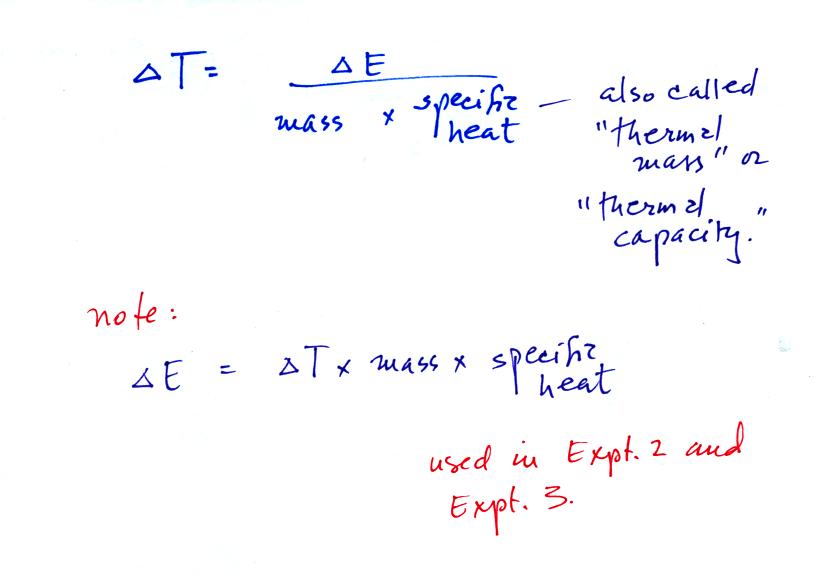 ΔT = ΔE
mass × specific heat — also called
"thermal mass" or
"thermal capacity."
note:
ΔE = ΔT × mass × specific heat
used in Expt. 2 and
Expt. 3.